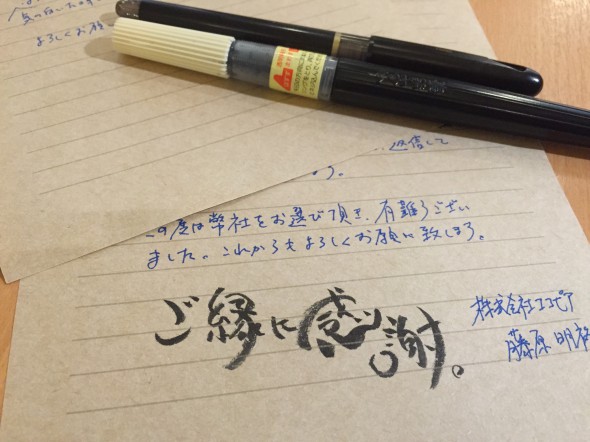 よろしくお願
返信して
す。
この度は弊社をお選び頂き、有難うござい
ました。これからもよろしくお願い致します。
ご縁に感謝。
株式会社エコピア
藤原明裕